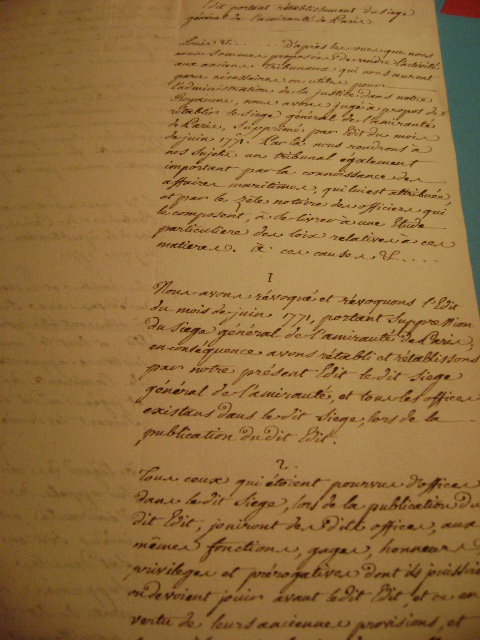 Edit portant rétablissement du siege
général de l'amirauté de Paris
Louis &.... D'après les vues que nous
nous sommes proposées de rendre l'activité
aux anciens Tribunaux qui nous auroient
paru nécessaires ou utiles pour
l'administration de la justice dans notre
Royaume, nous avons jugé à propos de
rétablir le Siege général de l'amirauté
de Paris, Supprimé par Edit du mois
de juin 1771. Par là nous rendrons à
nos sujets un tribunal également
important par la connoissance des
affaires maritimes, qui lui est attribuée
et par le zèle notoire des officiers qui
le composent, à se livrer à une Etude
particuliere des loix relatives à ces
matieres. à ces causes &....
1
Nous avons révoqué et révoquons l'Edit
du mois de juin 1771, portant Suppression
du Siege général de l'amirauté de Paris,
en conséquence avons rétabli et rétablissons
par notre présent Edit le dit Siege
général de l'amirauté, et tous les offices
existans dans le dit Siege, lors de la
publication du dit Edit.
2.
Tous ceux qui étoient pourvus d'offices
dans le dit Siege, lors de la publication du
dit Edit, jouiront des dits offices, aux
mêmes fonctions, gages, honneurs
privileges et prérogatives dont ils jouissoient
ou devoient jouir avant le dit Edit, et ce en
vertu de leurs anciennes provisions, et